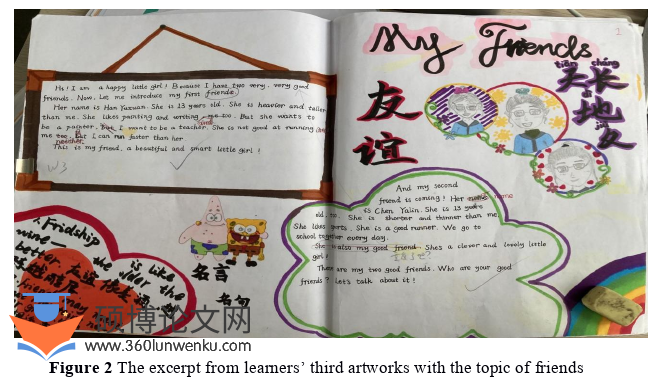 Hi! I am a happy little girl! Because I have two very, very good
friends. Now. Let me introduce my first friends.
Her name is Han Yuxuan. She is 13 years old. She is heavier and taller
than me. She likes painting and writing me too. But she wants to
be a painter. But I want to be a teacher. She is not good at running
and
me too. But I can run faster than her.
neither.
This is my friend, a beautiful and smart little girl!
W3
My Friends
1
友谊
tiān cháng
天长
dì
地
jiǔ
久
And my second
friend is coming! Her name
name
is Chen Yalin. She is 13 years
old, too. She is shorter and thinner than me.
She likes sports. She is a good runner. We go to
school together every day.
She also my good friend. Shes a clever and lovely little
girl!
These are my two good friends. Who are your good
friends? Let's talk about it!
A Fridship is like
wine the older the
better.
名言
名句
硕博论文网
www.360lunwenku.com
Figure 2 The excerpt from learners' third artworks with the topic of friends